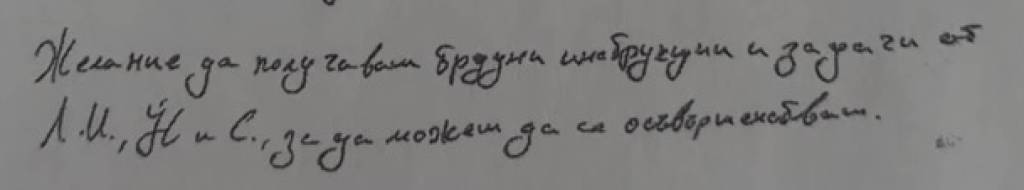 Желание да получавам трудни инструкции и задачи от
Л.И., Й и С., за да можем да се осъвършенствам.